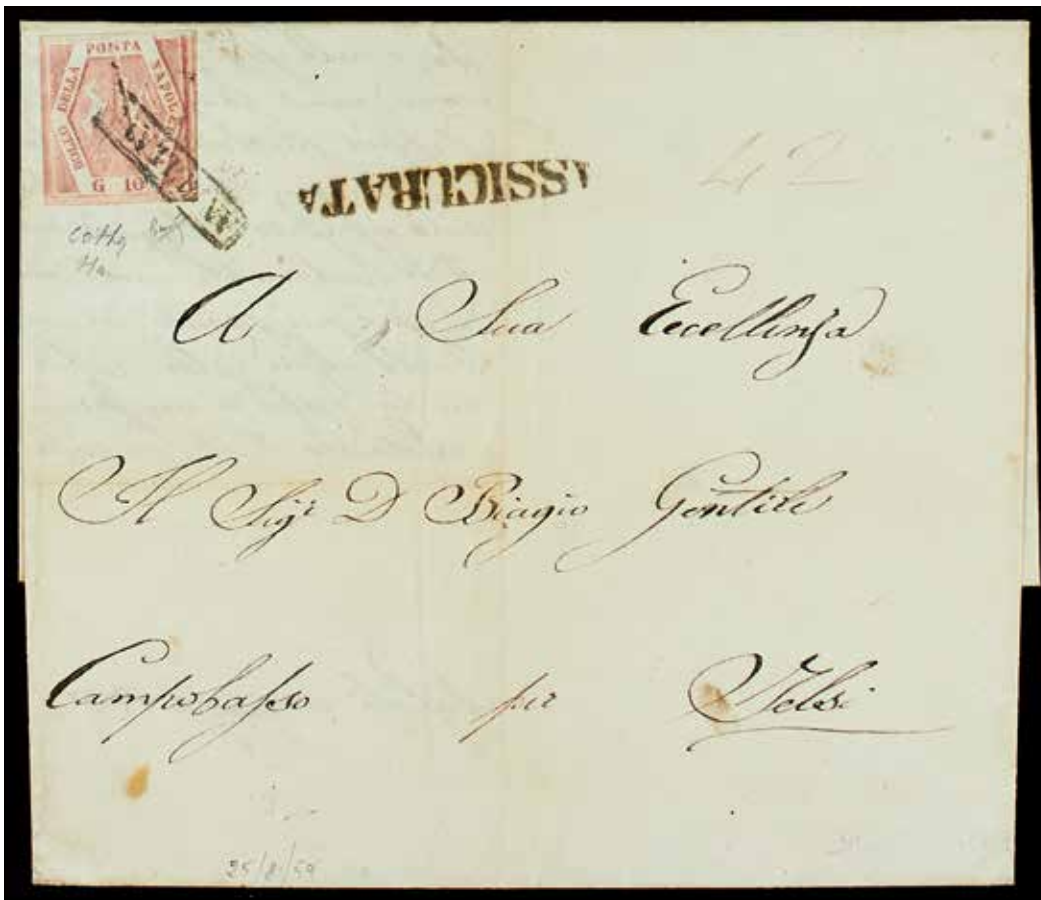 BOLLO DELLA POSTA NAPOLETANA
G 10
ASSICURATA
42
A Sua Eccellenza
Il Sigr D Biagio Gentile
Campobasso per Jelsi
25/8/59